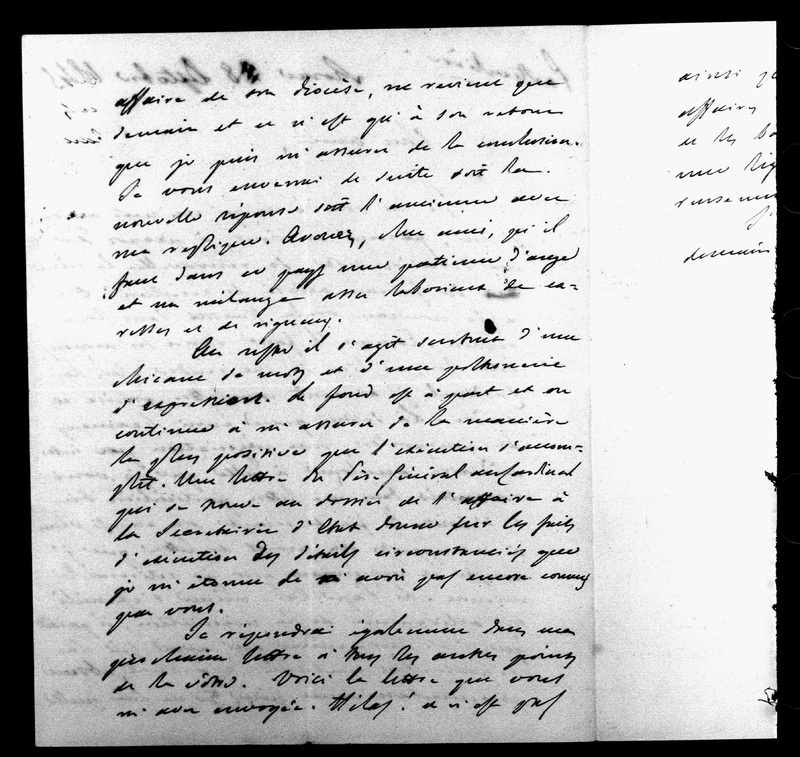 affaire de son diocèse, ne revient que
demain et ce n'est qu'à son retour
que je puis m'assurer de la conclusion.
Je vous enverrai de suite soit la
nouvelle réponse soit l'ancienne avec
ma replique. Avouez, cher ami, qu'il
faut dans ce pays une patience d'ange
et un mélange assez laborieux de ca-
resses et de rigueurs.
Au reste il s'agit surtout d'une
chicane de mots et d'une poltronnerie
d'expressions. Le fond est à part et on
continue à m'assurer de la manière
la plus positive que l'exécution s'accom-
plit. Une lettre du Père Général au Cardinal
qui se trouve au dossier de l'affaire à
la Secretairie d'Etat donne sur les faits
d'exécution des détails circonstanciés que
je m'étonne de n'avoir pas encore connus
par vous.
Je répondrai également dans ma
prochaine lettre à tous les autres points
de la vôtre. Voici la lettre que vous
m'avez envoyée. Hélas! ce n'est pas
ainsi
affaires
de les
une
demain